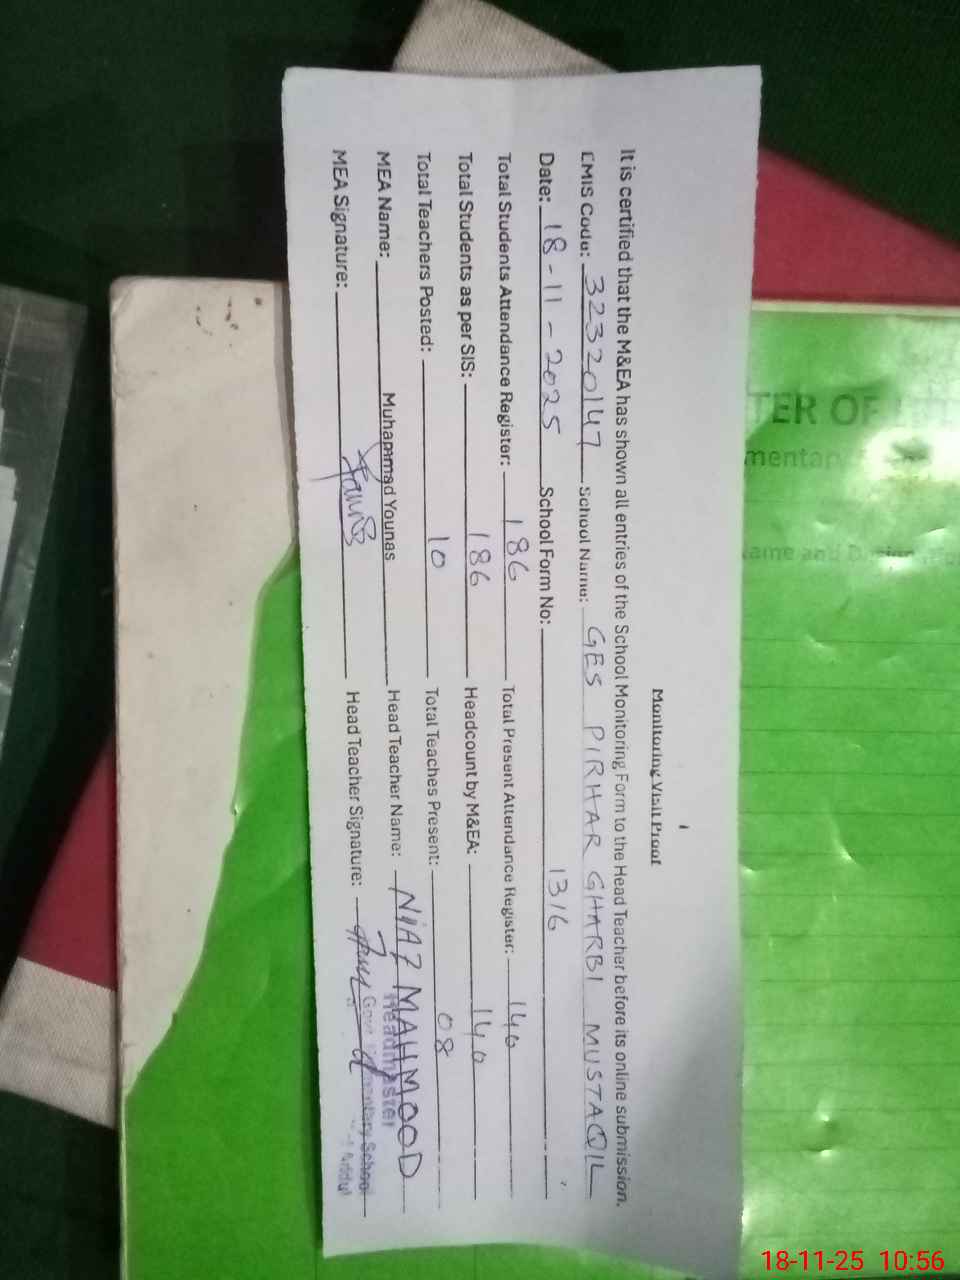 Monitoring Visit Proof
It is certified that the M&EA has shown all entries of the School Monitoring Form to the Head Teacher before its online submission.
EMIS Code: 32320147 School Name: GES PIRHAR GHARBI MUSTAQIL
Date: 18-11-2025 School Form No: 1316
Total Students Attendance Register: 186 Total Present Attendance Register: 140
Total Students as per SIS: 186 Headcount by M&EA: 140
Total Teachers Posted: 10 Total Teaches Present: 08
MEA Name: Muhammad Younas Head Teacher Name: NIAZ MAHMOOD
MEA Signature: Head Teacher Signature:
Headmaster
Govt Elementary School
TER OF
mentary
ame and
18-11-25 10:56